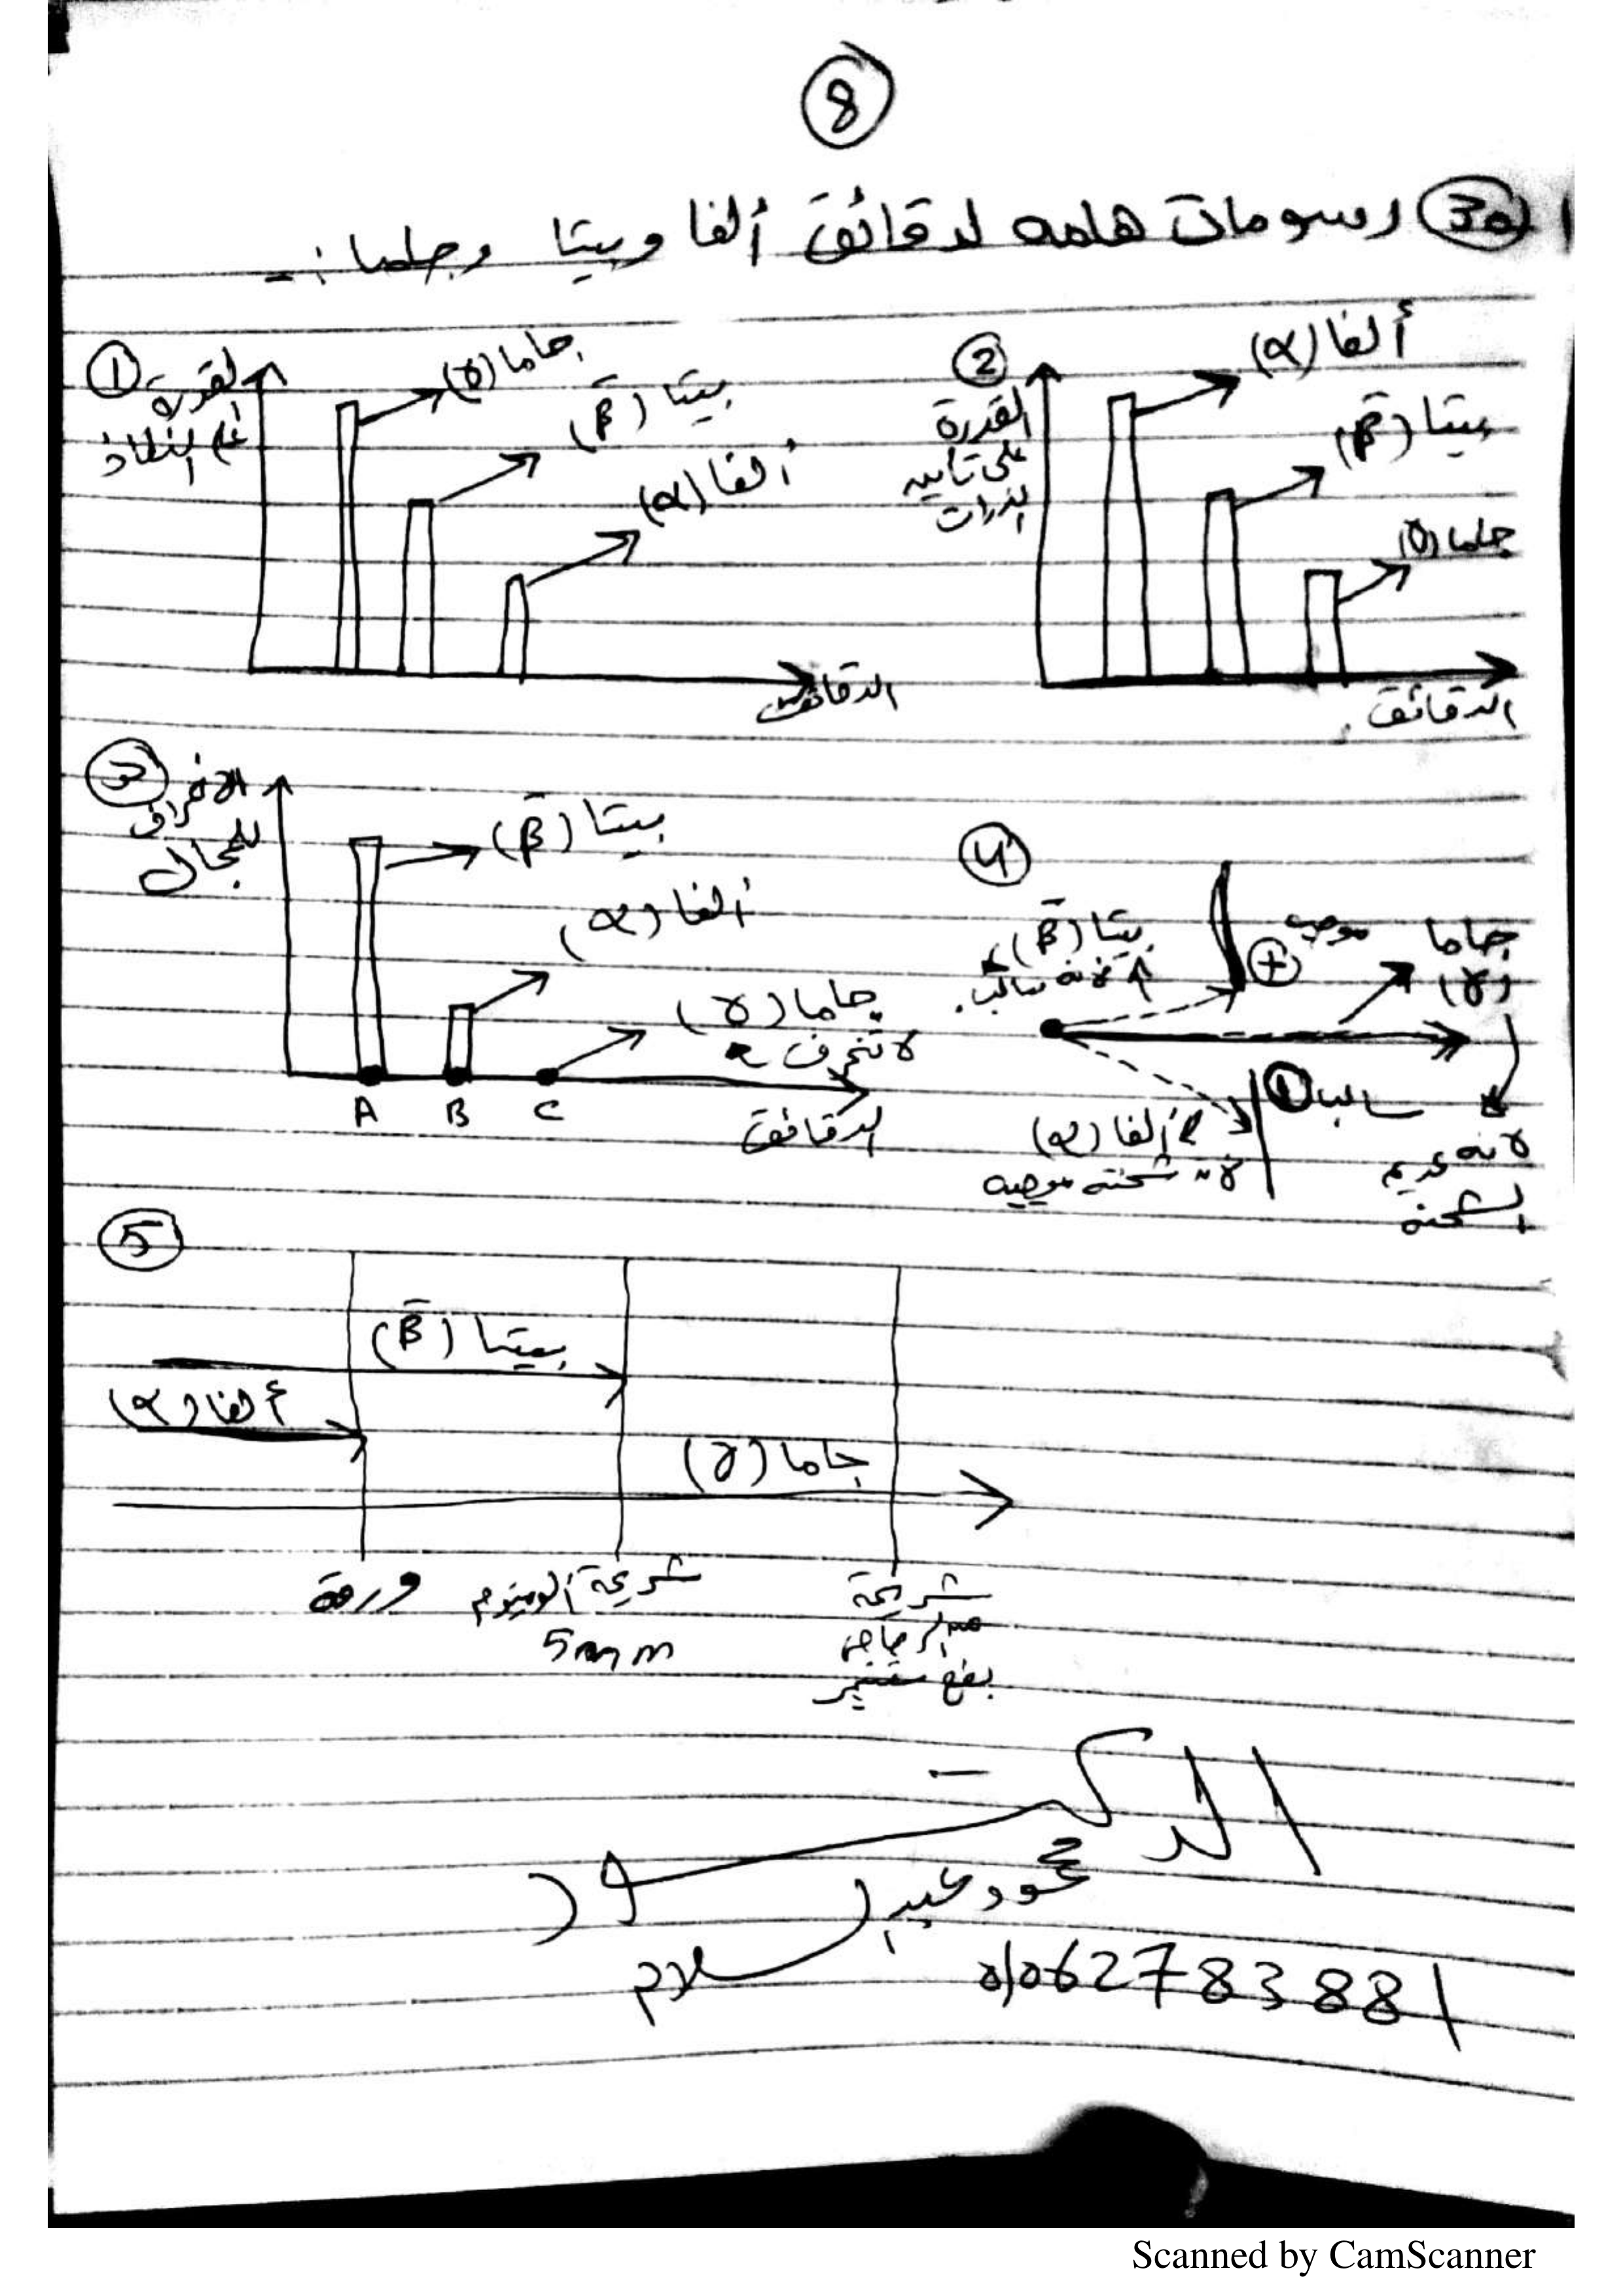 8
30 رسومات هامه لدقائق ألفا وبيتا وجاما :-
1
القدرة
على النفاذ
جاما (γ)
بيتا (β̄)
ألفا (α)
الدقائق
2
القدرة
على تأين
الذرات
ألفا (α)
بيتا (β̄)
جاما (γ)
الدقائق
3
الانحراف
للمجال
بيتا (β̄)
ألفا (α)
جاما (γ)
لا تنحرف
A B C
الدقائق
4
بيتا (β̄)
لانه سالب
موجب
+
جاما
(γ)
سالب
ألفا (α)
لان شحنته موجبه
لانه عديم
الشحنة
5
بيتا (β̄)
ألفا (α)
جاما (γ)
ورقة
شريحة ألومنيوم
5mm
شريحة
من الرصاص
بضع سنتيمتر
الدكتور
محمود عبد السلام
01062783881
Scanned by CamScanner